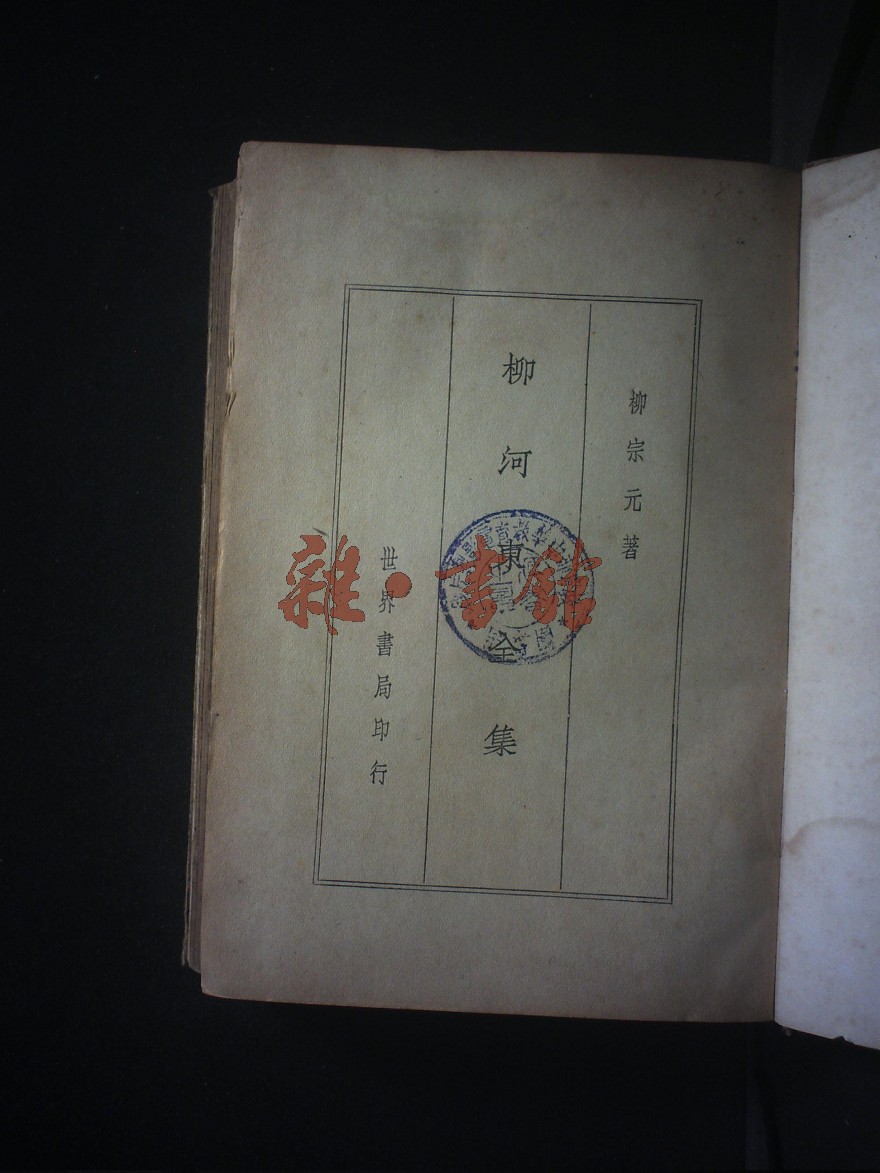 柳宗元著
柳河東全集
世界書局印行
雜·書館